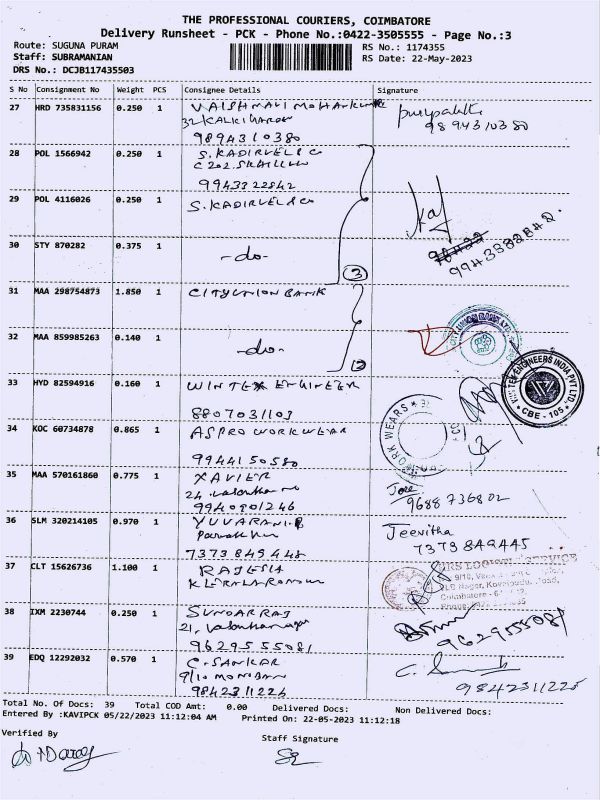 THE PROFESSIONAL COURIERS, COIMBATORE
Delivery Runsheet - PCK - Phone No.:0422-3505555 - Page No.:3
Route: SUGUNA PURAM
RS No.: 1174355
Staff: SUBRAMANIAN
RS Date: 22-May-2023
DRS No.: DCJB117435503
S No Consignment No Weight PCS Consignee Details Signature
27 HRD 735831156 0.250 1 VAISHNAVI MOHANKUMAR
32 KALKI GARDEN
9894310380
9894310380
28 POL 1566942 0.250 1 S. KADIRVEL & CO
9943322842
29 POL 4116026 0.250 1 S. KADIRVEL & CO
30 STY 870282 0.375 1 -do-
(3)
31 MAA 298754873 1.850 1 CITYUNION BANK
CITY UNION BANK LTD.
32 MAA 859985263 0.140 1 -do-
33 HYD 82594916 0.160 1 WINTEX ENGINEER
8807031103
WINTEX ENGINEERS INDIA PVT LTD.
CBE - 105.
34 KOC 60734878 0.865 1 ASPRO WORKWEAR
9944150580
WORK WEARS
35 MAA 570161860 0.775 1 XAVIER
24,
9940901246
Jose
9688736802
36 SLM 320214105 0.970 1 YUVARANI.
7373849448
Jeevitha
7373849445
37 CLT 15626736 1.100 1 RAJESH
38 IXM 2230744 0.250 1 SUNDARRAJ
21,
9629555081
9629555081
39 EDQ 12292032 0.570 1 C. SANKAR
9/10
9842311226
9842311225
Total No. Of Docs: 39 Total COD Amt: 0.00 Delivered Docs: Non Delivered Docs:
Entered By :KAVIPCK 05/22/2023 11:12:04 AM Printed On: 22-05-2023 11:12:18
Verified By
Staff Signature